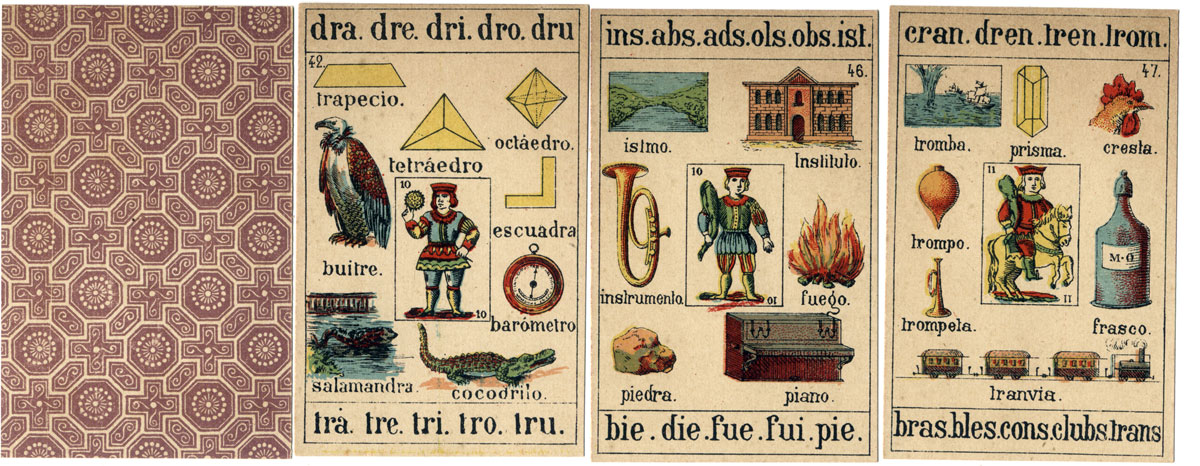 dra. dre. dri. dro. dru
42.
trapecio.
octáedro.
tetráedro
10
escuadra
buitre.
10
barómetro
salamandra.
cocodrilo.
tra. tre. tri. tro. tru.
ins.abs.ads.ols.obs.ist.
46.
istmo.
Instituto.
10
instrumento
10
fuego.
piedra.
piano.
bie.die.fue.fui.pie.
cran.dren.tren.trom.
47.
tromba.
prisma.
cresta.
11
trompo.
M-G
11
trompeta.
frasco.
tranvia.
bras.bles.cons.clubs.trans